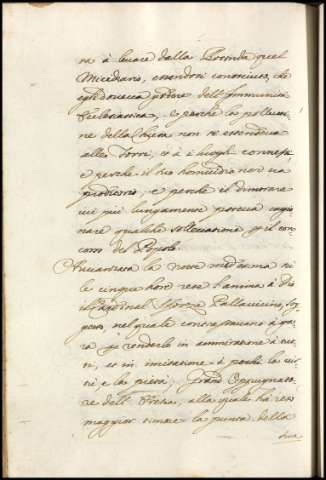 ra à levare dalla Bomba quel
Micidiario, essendosi conosciuto, che
egli doveva godere dell'Immunità
Ecclesiastica, e perche la polluzio
ne della Chiesa non si estendeva
alle Torri, et à i luoghi connessi
e perche il suo homicidio non era
proditorio, e perche il dimorare
ivi più lungamente poteva cagio
nare qualche sollevazione per il con
corso del Popolo.
Avvanzata la notte medesima si
le cinque hore rese l'anima à Dio
il Cardinal Sforza Pallavicino, sog
getto, nel quale contrastavano à ga
ra per renderlo in ammiratione à tut
ti, et in imitatione à pochi la virtù
e la pietà. Grand'Oppugnato
re dell'Eresia, alla quale hà reso
maggior timore la punta della
sua